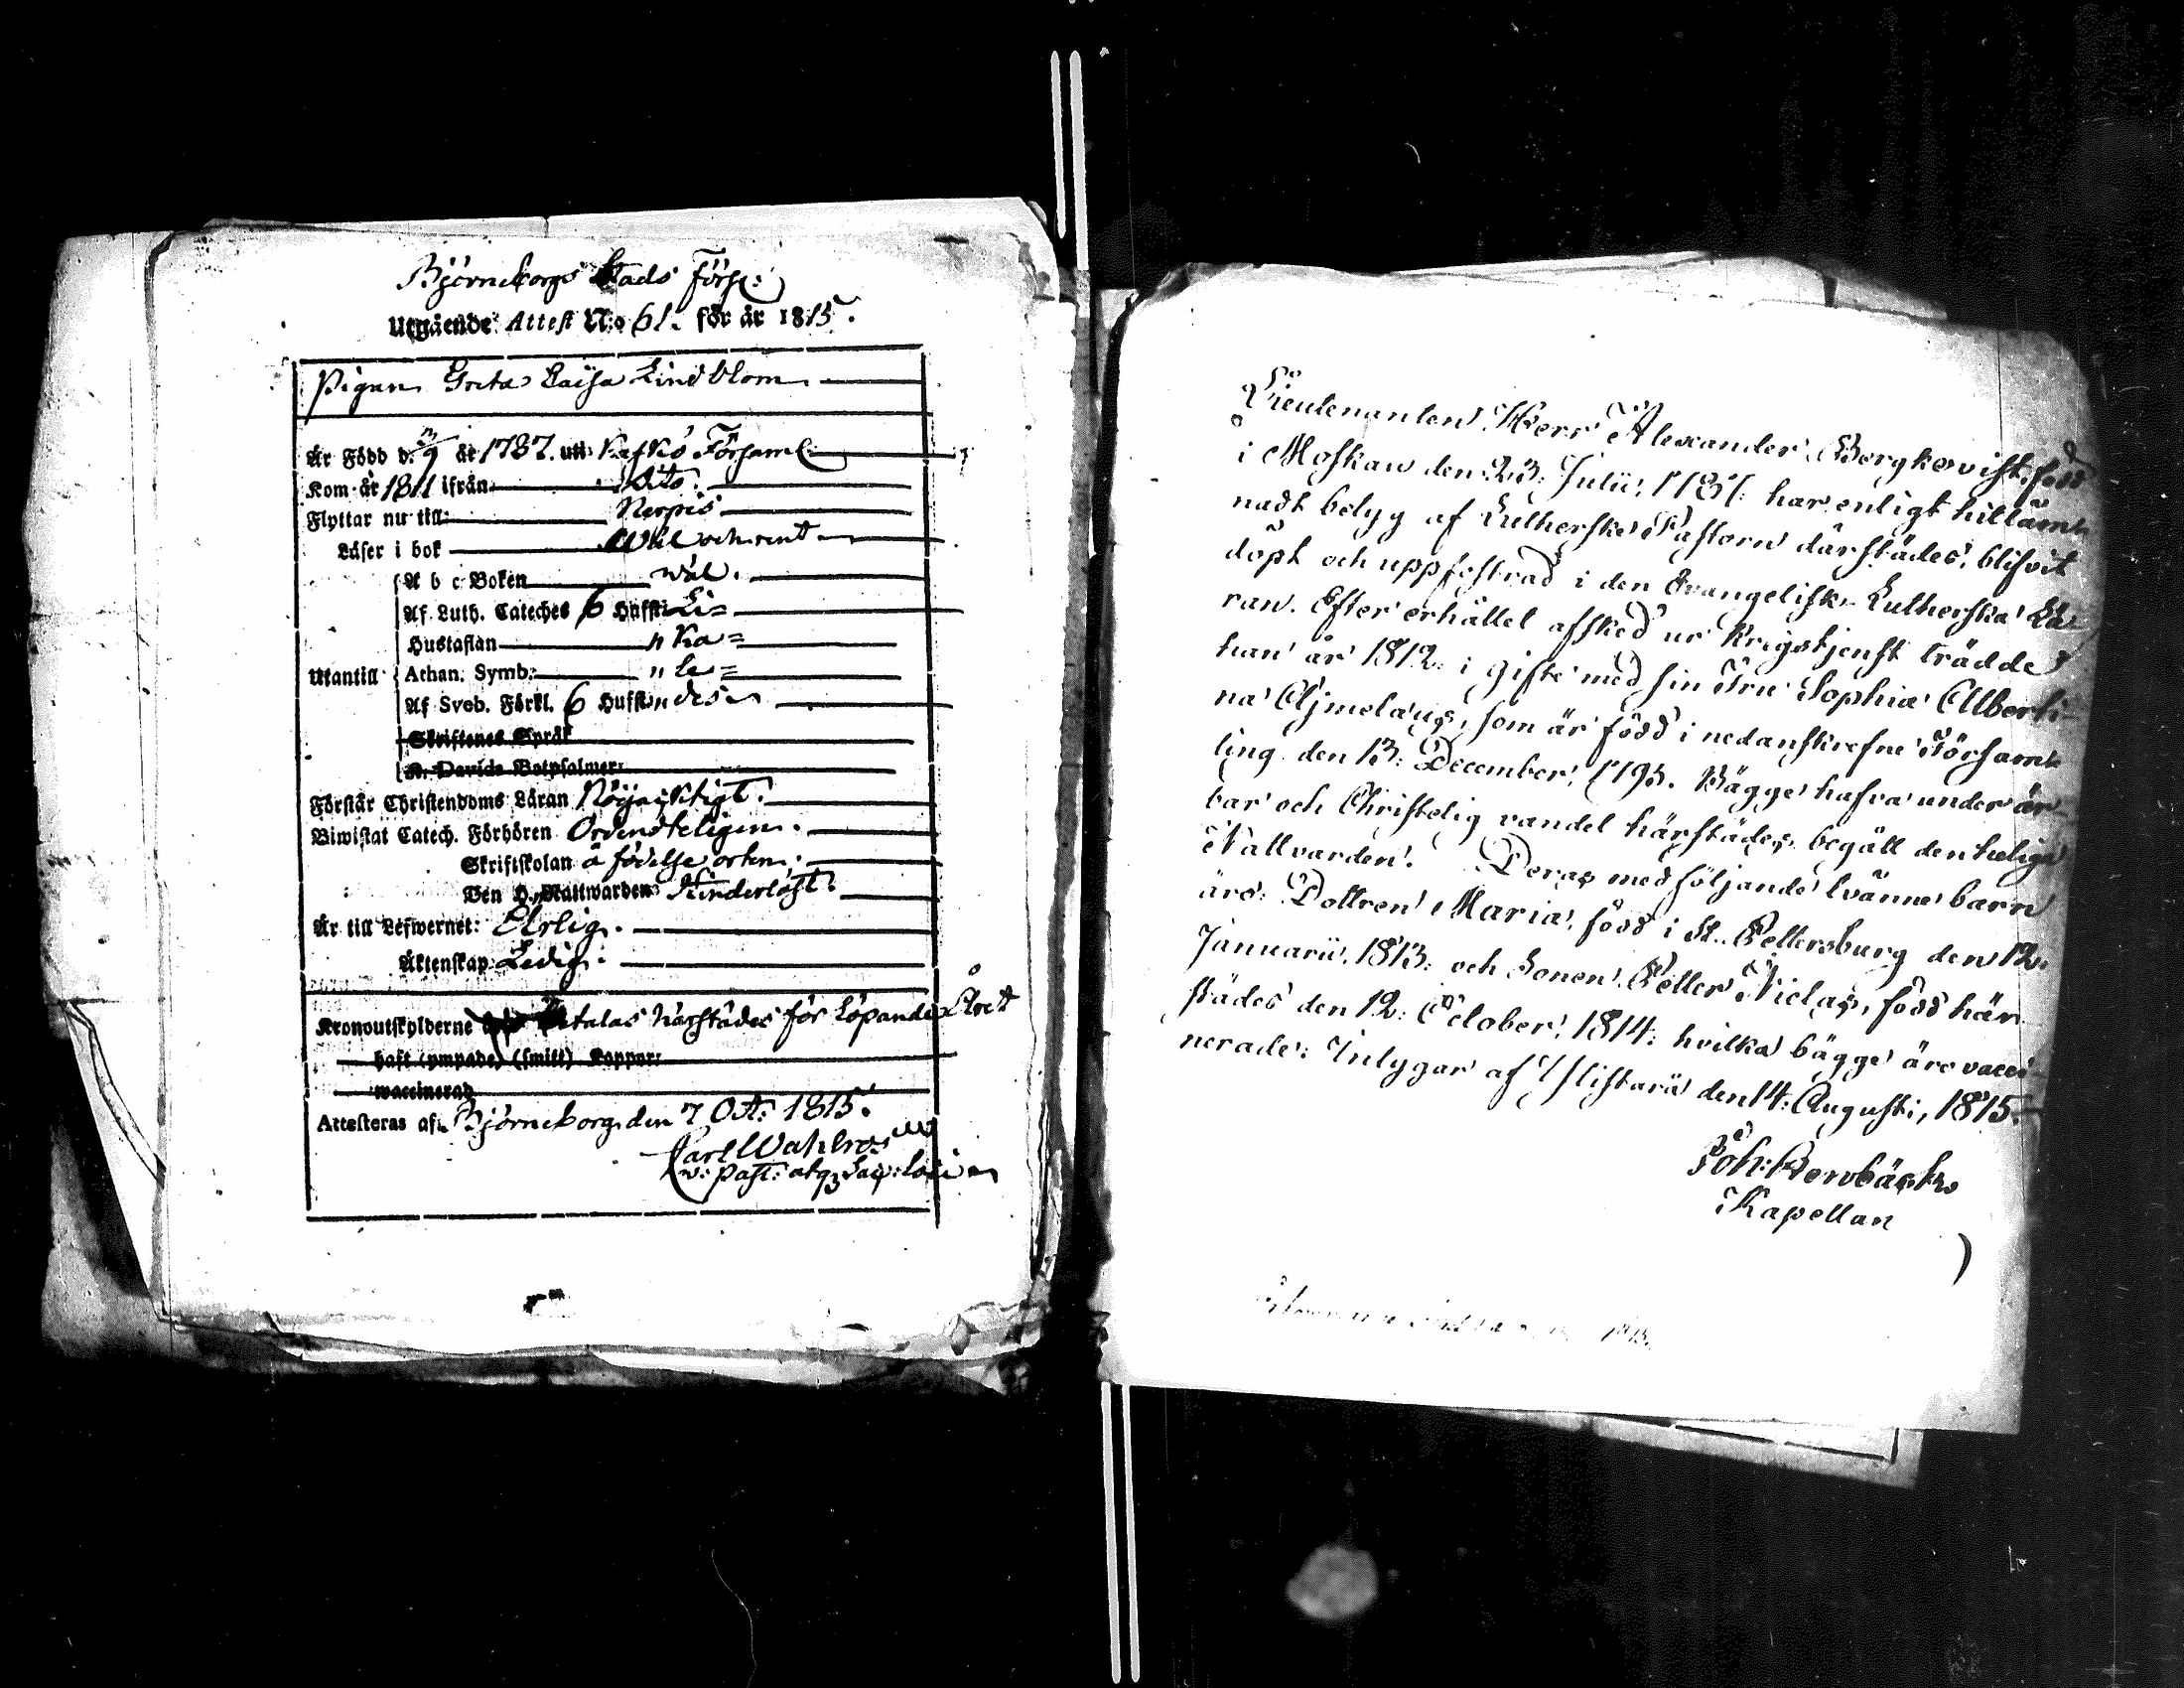 Björneborgs Stads Förs:
Utgående Attest N:o 61. för år 1815.
Pigan Greta Caisa Lindblom
Är Född d. 9 år 1787. uti Kafkö Församl:
Kom år 1811 ifrån dito.
Flyttar nu till: Nerpis
Läser i bok Wäl och rent
A b c Boken wäl.
Af Luth. Cateches 6 Hufst: Li=
Hustaflan " Ka=
Utantill Athan. Symb: " le=
Af Sveb. Förkl. 6 Hufst: " des
Skriftenes Språk
K. Davids Botpsalmer:
Förstår Christendoms Läran Nöjagktigt.
Biwistat Catech. Förhören Ordenteligen.
Skriftskolan å födelse orten.
Den H. Nattwarden Hinderlöst.
Är till Lefwernet: Ehrlig.
Äktenskap Ledig.
Kronoutskylderne betalas härstädes för Löpande Året
haft (ympade) (smitt) Koppor:
waccinerad
Attesteras af Björneborg den 7 Oct: 1815.
Carl Wahlroos
v: Past: atq Sac: loci
Lieutenanten Herr Alexander Bergkovist, född
i Moskau den 23: Julii, 1781: har enligt hitläm-
nadt betyg af Lutherske Pastorn därstädes, blifvit
döpt och uppfostrad i den Evangelisk-Lutherska Lä-
ran. Efter erhållet afsked ur krigstjenst trädde
han år 1812: i gifte med sin Fru Sophia Alberti-
na Ajmelæus, som är född i nedanskrefne Försam-
ling den 13: December, 1793. Bägge hafva under är-
bar och Christelig vandel härstädes begått den heliga
Nattvarden. Deras medföljande tvänne barn
äro: Dottren Maria, född i St. Pettersburg den 12.
Januarii, 1813: och Sonen Petter Niclas, född här-
städes den 12: October, 1814: hvilka bägge äro vacci-
nerade: Intygar af Ylistarå den 14: Augusti, 1815.
Joh: Kerobäck
Kapellan
1815.